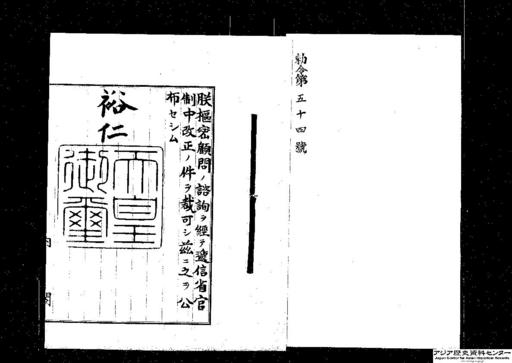 勅令第五十四號
朕樞密顧問ノ諮詢ヲ經テ遞信省官
制中改正ノ件ヲ裁可シ茲ニ之ヲ公
布セシム
裕仁
天皇
御璽
内閣
アジア歴史資料センター
Japan Center for Asian Historical Records